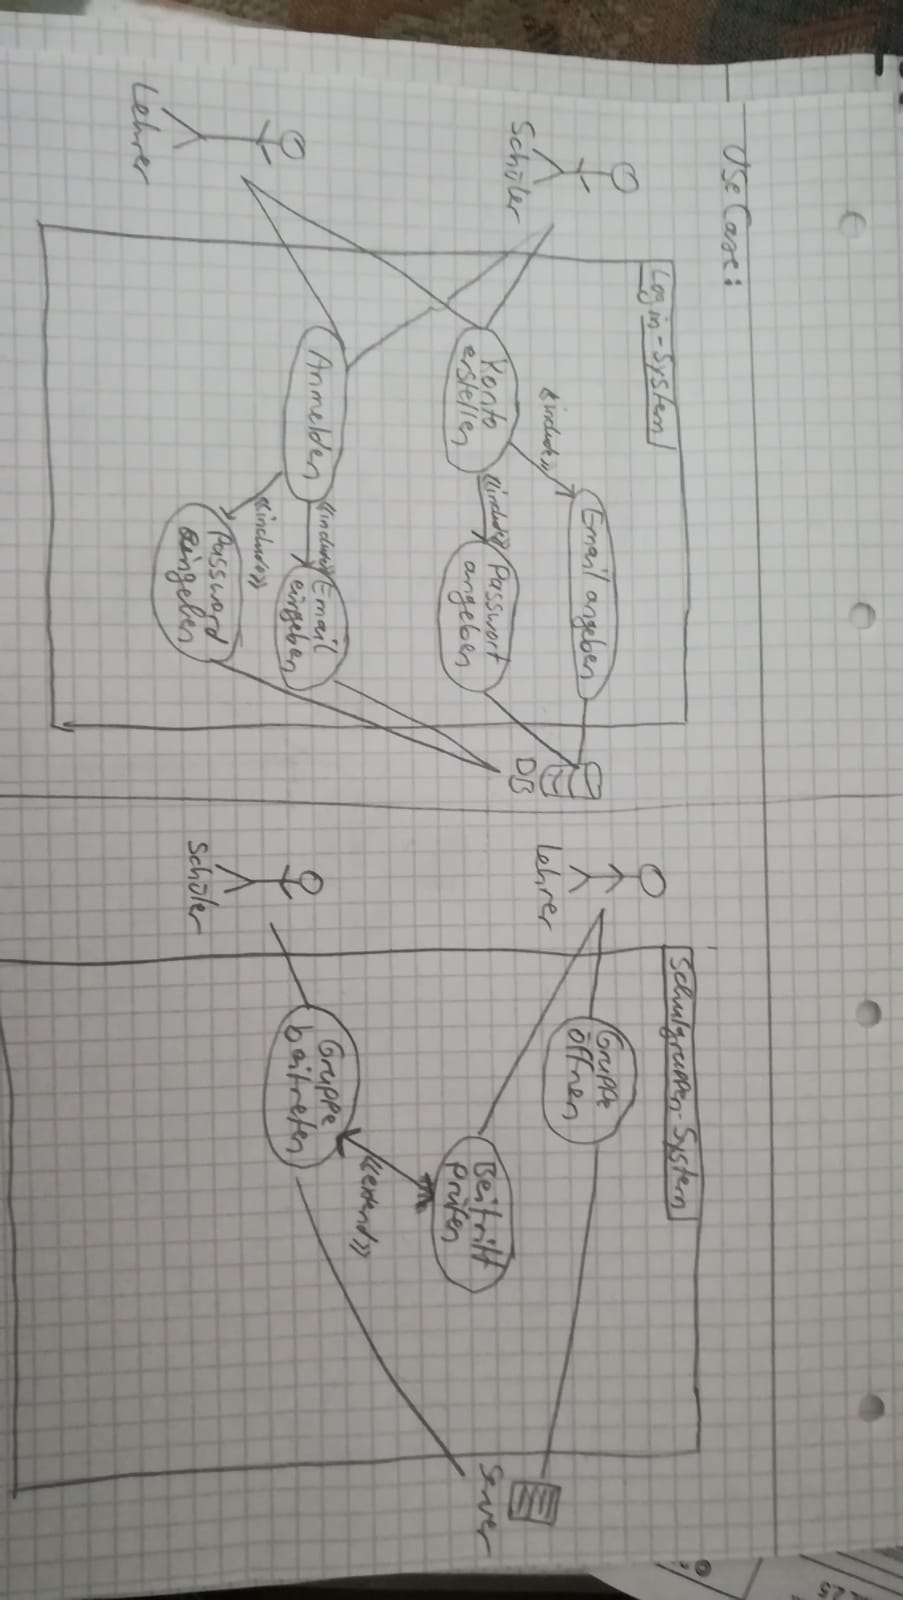 Use Case:
Login-System
Schüler
Email angeben
«include»
Konto
erstellen
«include»
Passwort
angeben
DB
Anmelden
«include»
Email
eingeben
«include»
Password
eingeben
Lehrer
Schulgruppen-System
Lehrer
Gruppe
öffnen
Server
Beitritt
prüfen
«extend»
Gruppe
beitreten
Schüler